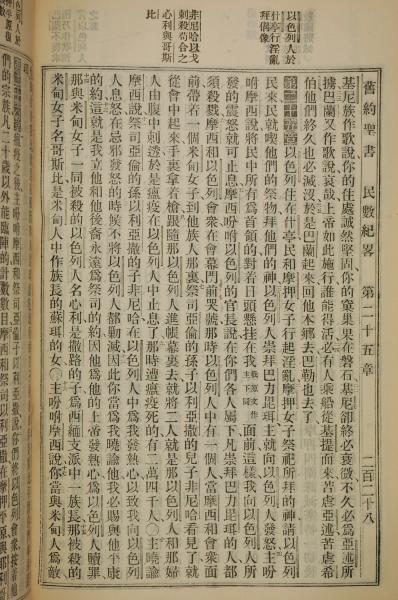 舊約聖書 民數紀畧 第二十五章 二百二十八
以色列人於什亭行淫亂拜偶像
非尼哈以戈刺殺苟合之心利與哥斯比
基尼族作歌說你的住處誠然堅固你的窠巢果在磐石基尼卻終必衰微不久必爲亞述所
擄巴蘭又作歌說哀哉上帝如此施行誰能得活必有人乘船從基提而來苦虐亞述苦虐希
伯他們終久也必滅沒於是巴蘭起來回他本鄉去巴勒也去了
以色列人住在什亭民和摩押女子行起淫亂摩押女子祭祀所拜的神請以色列
民來民就喫他們的祭物拜他們的神以色列人崇拜巴力毘珥主就向以色列人發怒主吩
咐摩西說將民中所有爲首領的對着日頭懸挂在我面前這樣我向以色列人所
發的震怒就可止息摩西吩咐以色列的官長說在你們各人屬下凡崇拜巴力毘珥的人都
須殺戮摩西和以色列會衆在會幕門前哭號那時以色列人中有一個人當摩西和會衆面
前帶着一個米甸女子到他族人那裏祭司亞倫的孫子以利亞撒的兒子非尼哈看見了就
從會中起來手裏拿着槍跟隨那以色列人進帳幕裏去就將二人就是那以色列人和那婦
人由腹中刺透於是瘟疫在以色列人中止息了那時遭瘟疫死的有二萬四千人〇主曉諭
摩西說祭司亞倫的孫子以利亞撒的子非尼哈在以色列人中爲我發熱心以致我向以色列
人息怒在忌邪發怒的時候不將以色列人都勦滅因此你當爲我曉諭他我必賜與他平康
的約這就是我立他和他後裔永遠爲祭司的約因他爲他的上帝發熱心爲以色列人贖罪
那與米甸女子一同被殺的以色列人名心利是撒路的子爲西緬支派中一族長那被殺的
米甸女子名哥斯比是米甸人中作族長的蘇珥的女〇主吩咐摩西說你當與米甸人爲敵